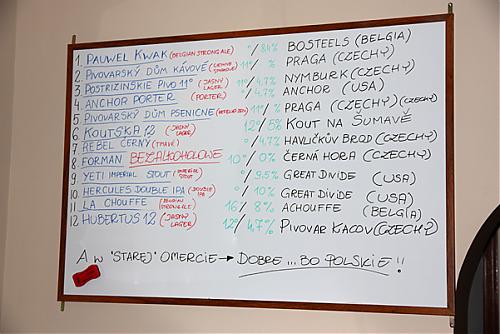 1. PAUWEL KWAK (BELGIAN STRONG ALE) °/8.4% BOSTEELS (BELGIA)
2. PIVOVARSKÝ DŮM KÁVOVÉ 11°/ % PRAGA (CZECHY)
3 POSTRIZINSKIE PIVO 11° (JASNY LAGER) °/4,7% NYMBURK (CZECHY)
4 ANCHOR PORTER (PORTER) ANCHOR (USA)
5 PIVOVARSKÝ DŮM PSENICNE (HEFEWEIZEN) 11°/ % PRAGA (CZECHY) (CZECHY)
6 KOUTSKA 12 (JASNY LAGER) 12°/5% KOUT NA ŠUMAVĚ
7 REBEL ČERNÝ (TMAVÉ) °/4,7% HAVLIČKŮV BROD (CZECHY)
8 FORMAN BEZALKOHOLOWE 10°/0% ČERNÁ HORA (CZECHY)
9 YETI IMPERIAL STOUT (IMPERIAL STOUT) °/9,5% GREAT DIVIDE (USA)
10 HERCULES DOUBLE IPA (DOUBLE IPA) °/10% GREAT DIVIDE (USA)
11 LA CHOUFFE (BELGIAN STRONG ALE) 16°/8% ACHOUFFE (BELGIA)
12 HUBERTUS 12 (JASNY LAGER) 12°/4,7% PIVOVAR KACOV (CZECHY)
A W "STAREJ" OMERCIE → DOBRE ... BO POLSKIE !!